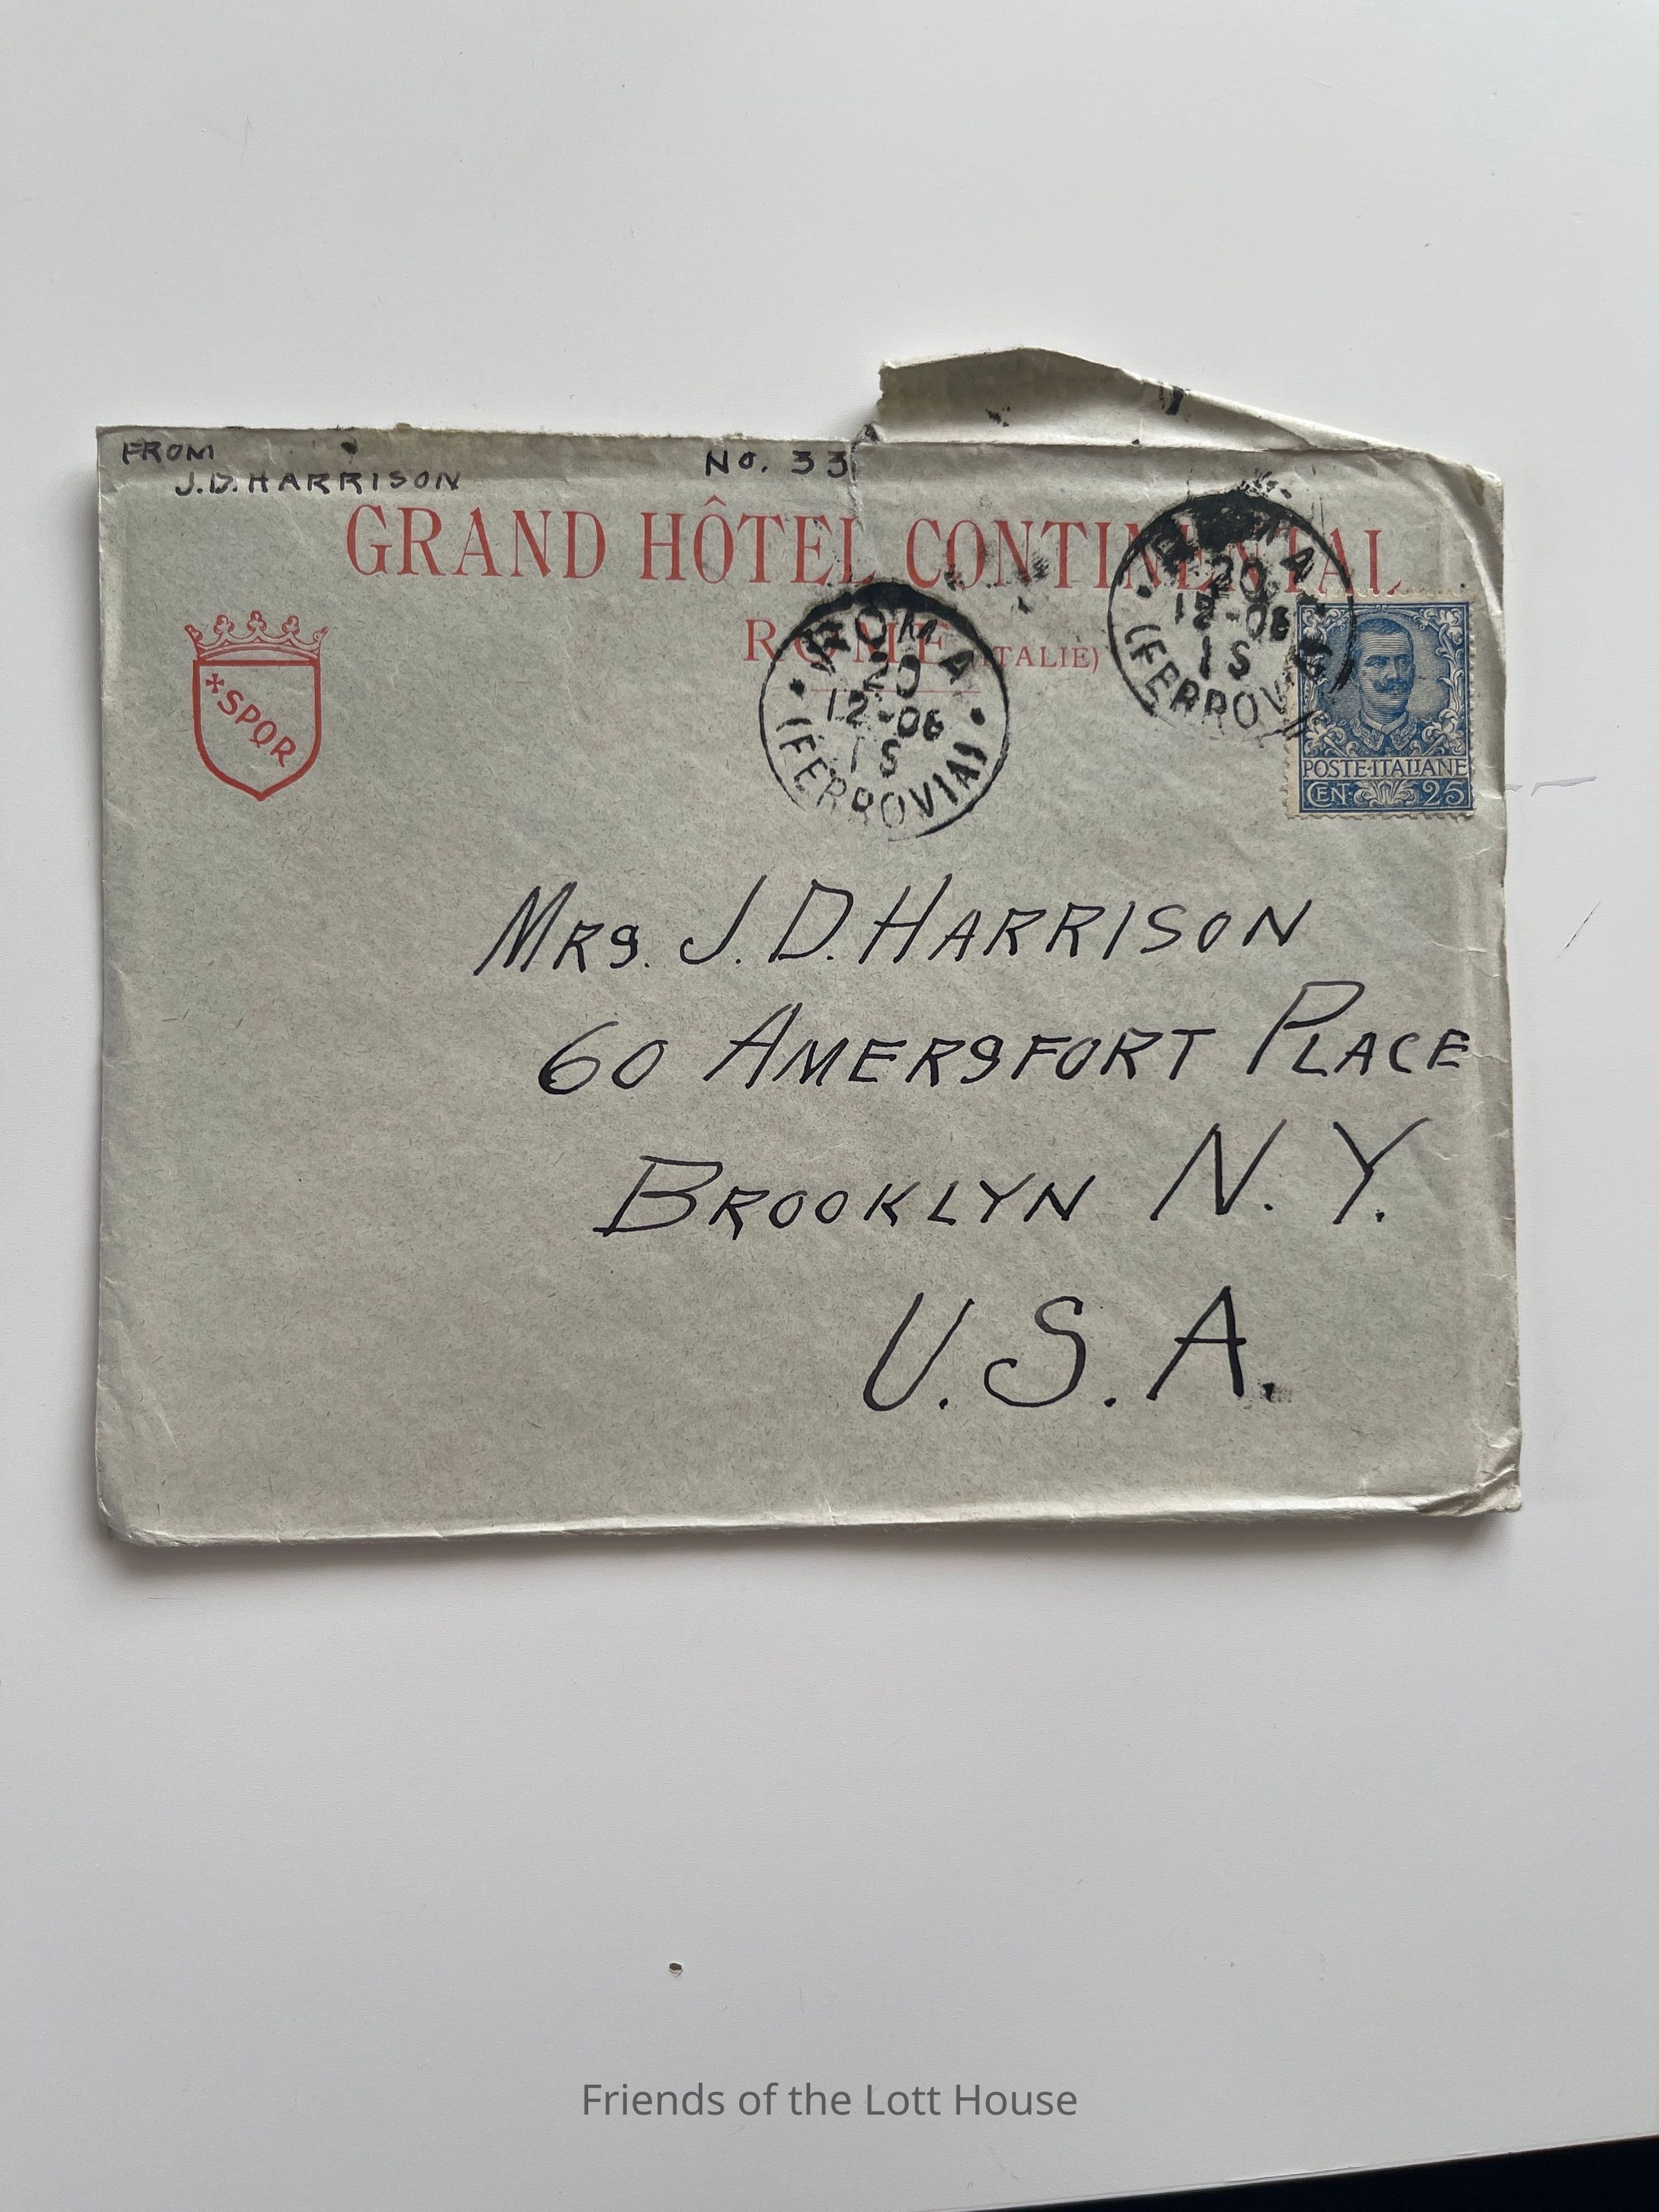 FROM
J.D. HARRISON
No. 33
GRAND HÔTEL CONTINENTAL
ROME (ITALIE)
SPQR
ROMA
20
12-06
1S
(FERROVIA)
ROMA
20
12-06
1S
(FERROVIA)
POSTE·ITALIANE
CEN. 25
MRS. J. D. HARRISON
60 AMERSFORT PLACE
BROOKLYN N. Y.
U. S. A.
Friends of the Lott House